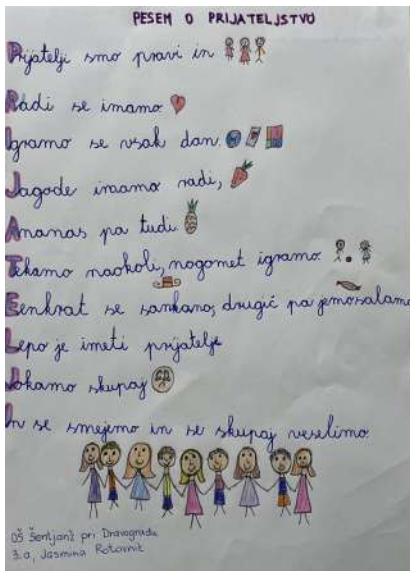 PESEM O PRIJATELJSTVU
Prijatelji smo pravi in
Radi se imamo.
Igramo se vsak dan.
Jagode imamo radi,
Ananas pa tudi.
Tekamo naokoli, nogomet igramo.
Eenkrat se sankamo, drugič pa jemo salamo
Lepo je imeti prijatelje
Jokamo skupaj
In se smejemo in se skupaj veselimo.
OŠ Šentjanž pri Dravogradu
3.a, Jasmina Rotovnik